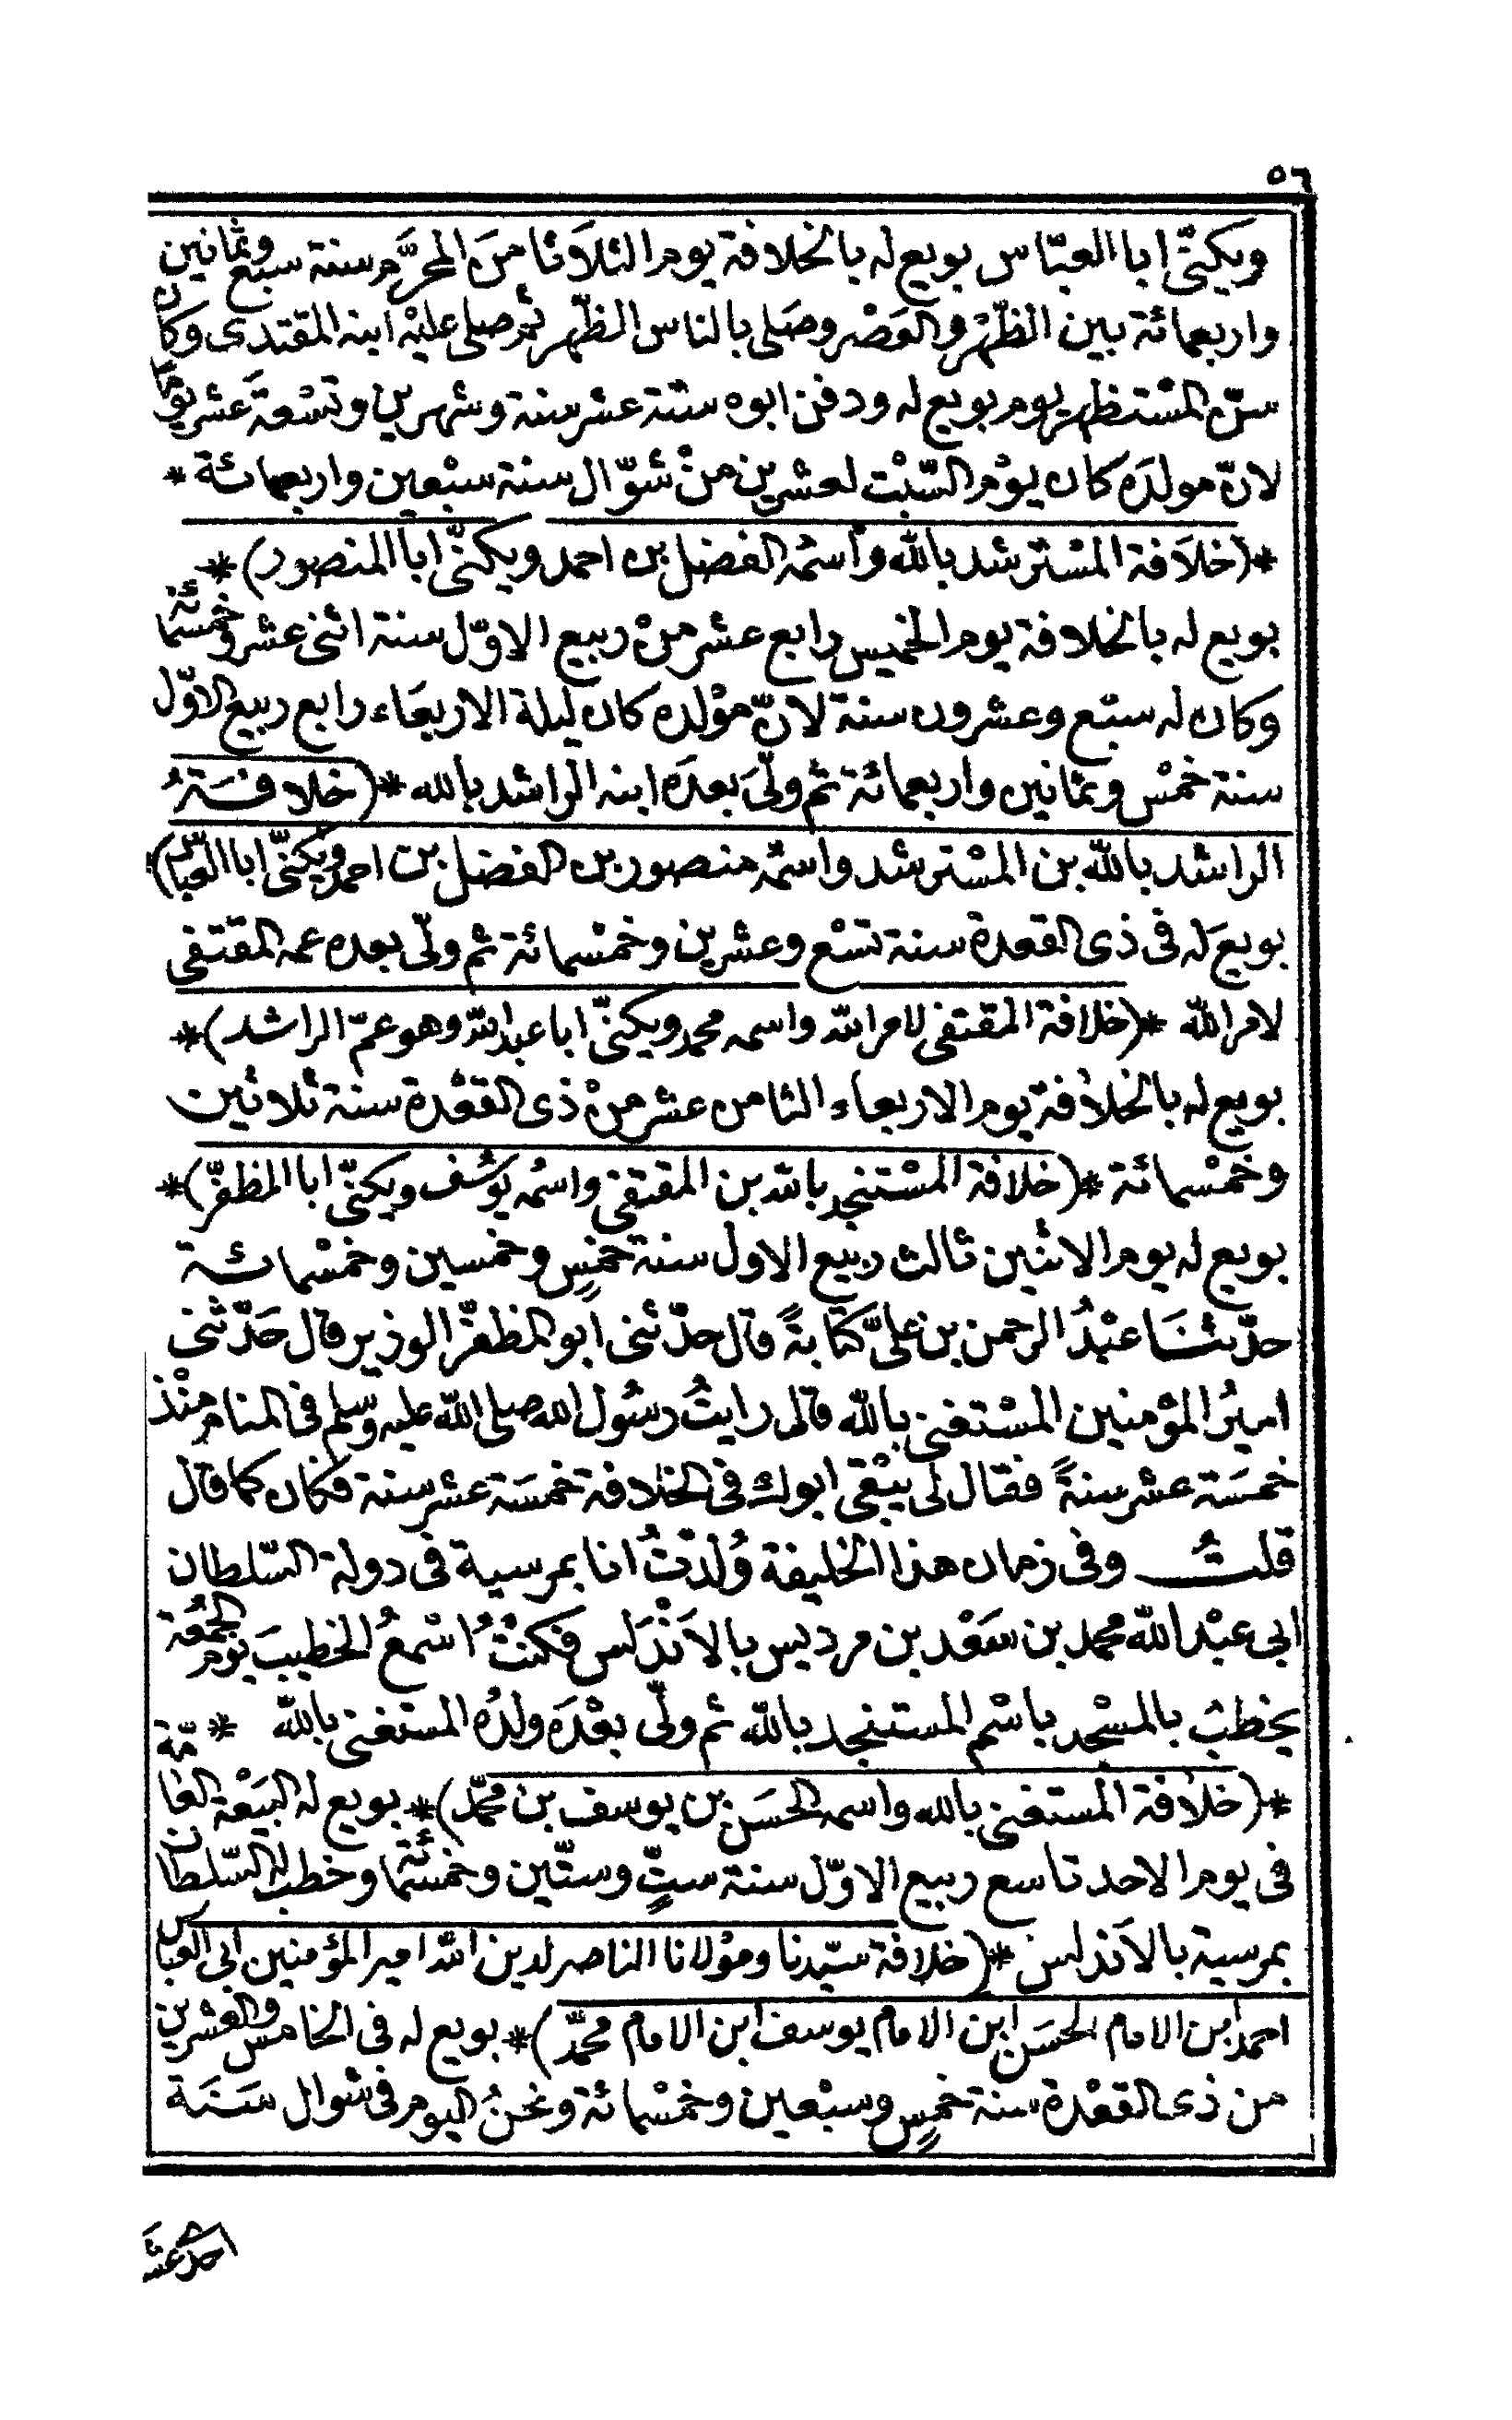 ٥٦
ويكنّى ابا العبّاس بويع له بالخلافة يوم الثلاَثا منَ المحرَّم سنة سبع وثمانين
واربعمائة بين الظّهْر والعَصْر وصَلى بالناس الظّهر ثم صلى عليْه ابنه المقتدى وكان
سنّ المسْتظهر يوم بويع له ودفن ابوه ستّة عشر سنة وشهرين وتسْعةَ عشر يومًا
لانّ مولدَه كان يوْم السّبْت لعشرين منْ شوّال سنة سبْعين واربعمائة *
*(خلاَفة المسْترشد بالله واسمُه الفضل بن احمد ويكنّى ابا المنصور)*
بويع له بالخلافة يوم الخميس رابع عشر منْ ربيع الاوّل سنة اثنى عشر وخمسمائة
وكان له سبْع وعشرون سنة لانّ موْلده كان ليلة الاربعَاء رابع ربيع الاوّل
سنة خمْس وثمانين واربعمائة ثم ولّىَ بعدَه ابنه الراشد بالله *(خلافَةُ
الراشد بالله بن المسْترشد واسمُه منصور بن الفضل بن احمد ويكنّى ابا العبّاس)
بويعَ له فى ذى القعدة سنة تسْع وعشرين وخمْسمائة ثم ولّى بعده عمه المقتفى
لامر الله *(خلافة المقتفى لامر الله واسمه محمد ويكنّى ابا عبد الله وهو عمّ الراشد)*
بويع له بالخلافة يوم الاربعاء الثامن عشر منْ ذى القعْدة سنة ثلاثين
وخمْسمائة *(خلافة المسْتنجد بالله بن المقتفى واسْمُه يوسُف ويكنّى ابا المظفّر)*
بويع له يوم الاثنين ثالث ربيع الاول سنة خمْسٍ وخمسين وخمْسمائة
حدّثنَا عبْدُ الرحمن بن علىّ كتابةً قال حدّثنى ابو المظفّر الوزير قال حَدّثنى
اميرُ المؤمنين المسْتغنى بالله قال رايتُ رسُول الله صلى الله عليه وسلم فى المنام منْذ
خمسَة عشر سنةً فقال لى يبْقى ابوك فى الخلافة خمسَة عشر سنة فكان كما قال
قلتُ وفى زمان هذا الخليفة وُلدْتُ انا بمرسية فى دولة السّلطان
ابى عبْد الله محمد بن سَعْد بن مرديس بالاَنْدَلس فكنْتُ اسْمعُ الخطيبَ يوْم الجمُعَة
يخطبُ بالمسْجد باسْم المستنجد بالله ثم ولّى بعْدَه ولدُه المستغنى بالله *
*(خلافة المستغنى بالله واسمه الحسَن بن يوسف بن محمّد)* بويع له البَيْعة العامّة
فى يوم الاحد تاسع ربيع الاوّل سنة ستٍّ وستّين وخمسْمائة وخطب له السّلطان
بمرسية بالاَندلس *(خلافة سيّدنا وموْلانا الناصر لدين الله امير المؤمنين ابى العبّاس
احمد ابن الامام الحسَن ابن الامام يوسف ابن الامام محمّد)* بويع له فى الخامس والعشرين
من ذى القعْدة سنة خمسٍ وسبْعين وخمْسمائة ونحنُ اليوم فى شوال سَنَة
احدى عشَر